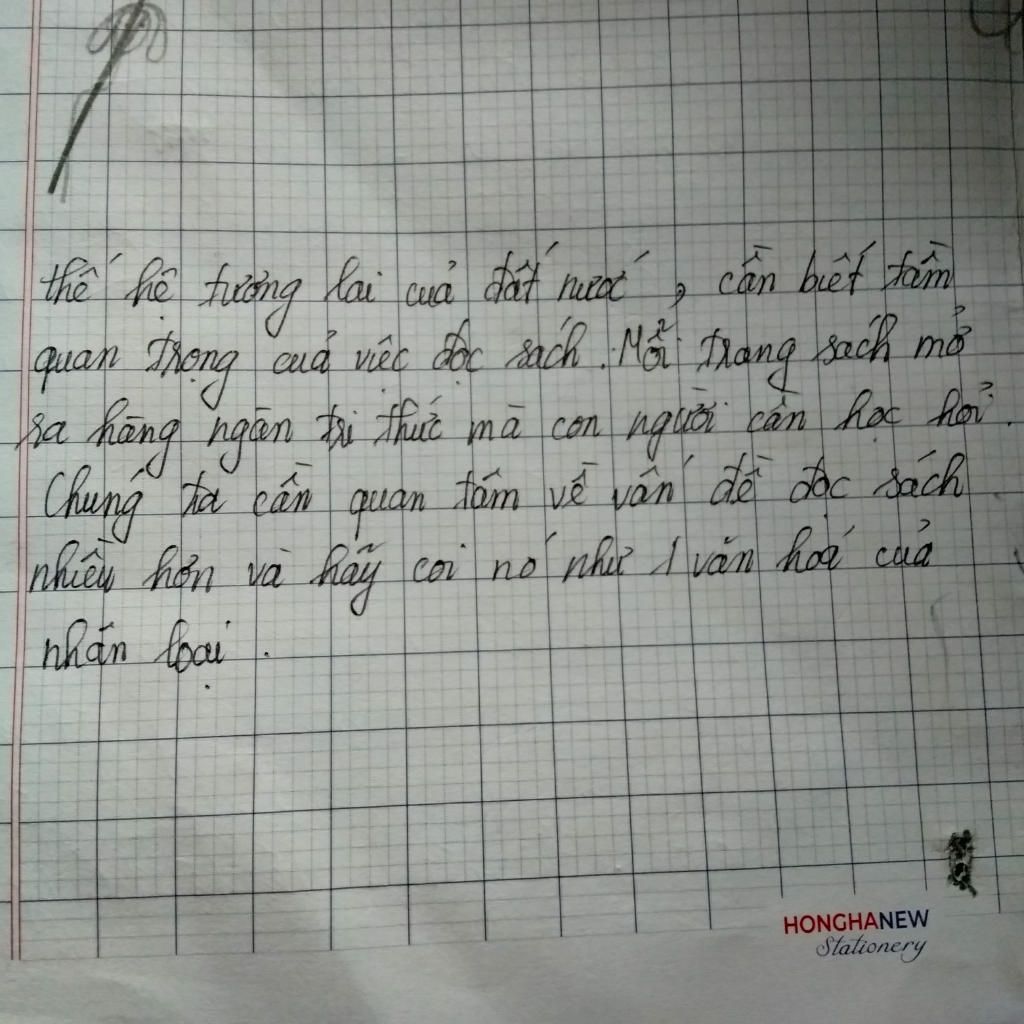 thế hệ tương lai cuả đất nước, cần biết tầm
quan trọng cuả việc đọc sách. Mỗi trang sách mở
ra hàng ngàn tri thức mà con người cần học hỏi.
Chúng ta cần quan tâm về vấn đề đọc sách
nhiều hơn và hãy coi nó như 1 văn hoá cuả
nhân loại.
HONGHANEW
Stationery